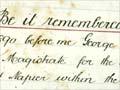 Be it remembered
ago before me George
Magistrate for the
Napier within the